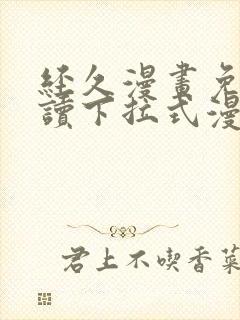 經久漫畫免
讀下拉式漫
君上不喫香菜